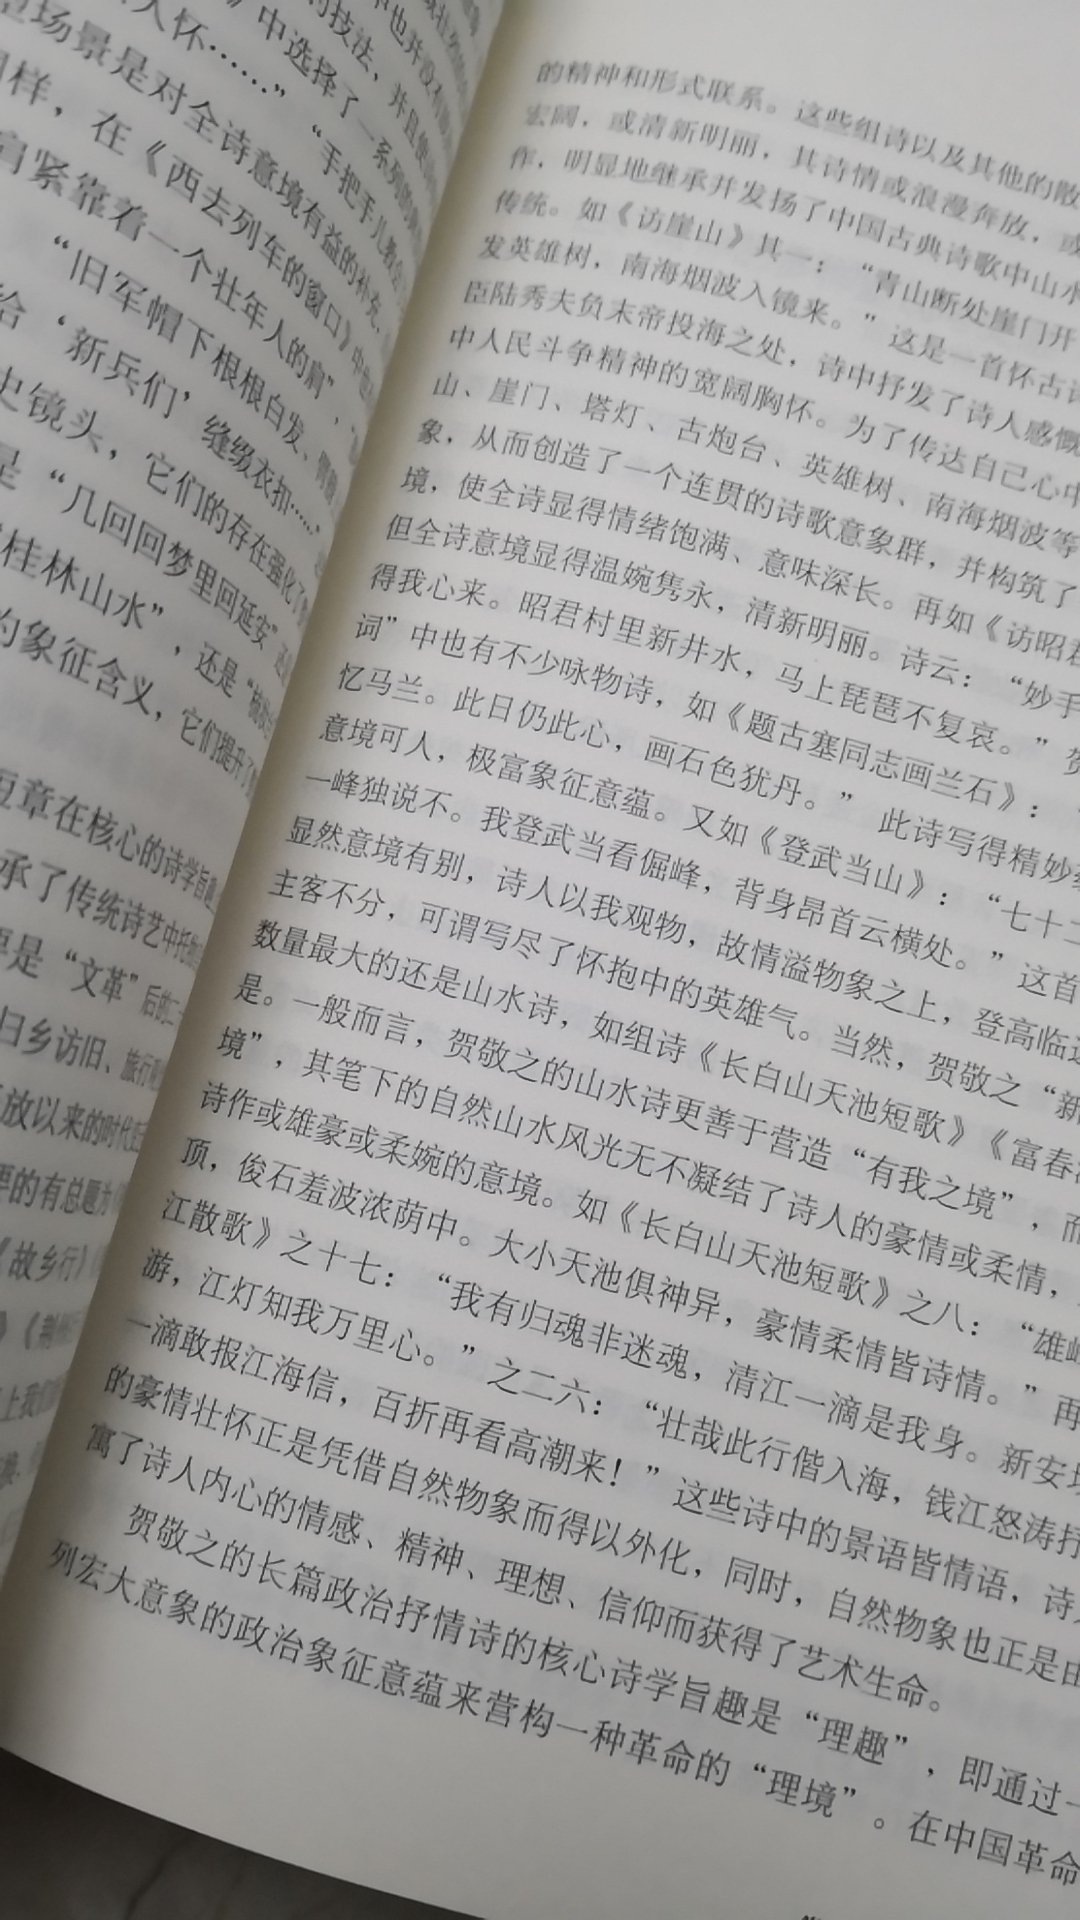 人怀……”“手把手儿教会
中选择了一系列的
的技法，并且使
型场景是对全诗意境有益的补充，
同样，在《西去列车的窗口》中
肩紧靠着一个壮年人的肩”，
“旧军帽下根根白发、
给‘新兵们’缝缀衣扣……”
史镜头，它们的存在强化了
是“几回回梦里回延安”
“桂林山水”，还是
的象征含义，它们提升了
短章在核心的诗学旨趣
承了传统诗艺中托物
要是“文革”后的二
归乡访旧、旅行
放以来的时代
要的有总题为
《故乡行》
》《荆州
上我们
的精神和形式联系。这些组诗以及其他的散
宏阔，或清新明丽，其诗情或浪漫奔放，或
作，明显地继承并发扬了中国古典诗歌中山水
传统。如《访崖山》其一：“青山断处崖门开
发英雄树，南海烟波入镜来。”这是一首怀古诗
臣陆秀夫负末帝投海之处，诗中抒发了诗人感慨
中人民斗争精神的宽阔胸怀。为了传达自己心中
山、崖门、塔灯、古炮台、英雄树、南海烟波等
象，从而创造了一个连贯的诗歌意象群，并构筑了
境，使全诗显得情绪饱满、意味深长。再如《访昭君
但全诗意境显得温婉隽永，清新明丽。诗云：“妙手
得我心来。昭君村里新井水，马上琵琶不复哀。”贺
词”中也有不少咏物诗，如《题古塞同志画兰石》：
忆马兰。此日仍此心，画石色犹丹。”此诗写得精妙
意境可人，极富象征意蕴。又如《登武当山》：“七十二
一峰独说不。我登武当看倔峰，背身昂首云横处。”这首
显然意境有别，诗人以我观物，故情溢物象之上，登高临远
主客不分，可谓写尽了怀抱中的英雄气。当然，贺敬之“新
数量最大的还是山水诗，如组诗《长白山天池短歌》《富春
是。一般而言，贺敬之的山水诗更善于营造“有我之境”，而
境”，其笔下的自然山水风光无不凝结了诗人的豪情或柔情，
诗作或雄豪或柔婉的意境。如《长白山天池短歌》之八：“雄峰
顶，俊石羞波浓荫中。大小天池俱神异，豪情柔情皆诗情。”再
江散歌》之十七：“我有归魂非迷魂，清江一滴是我身。新安
游，江灯知我万里心。”之二六：“壮哉此行偕入海，钱江怒涛抒
一滴敢报江海信，百折再看高潮来！”这些诗中的景语皆情语，诗
的豪情壮怀正是凭借自然物象而得以外化，同时，自然物象也正是由
寓了诗人内心的情感、精神、理想、信仰而获得了艺术生命。
贺敬之的长篇政治抒情诗的核心诗学旨趣是“理趣”，即通过一
列宏大意象的政治象征意蕴来营构一种革命的“理境”。在中国革命